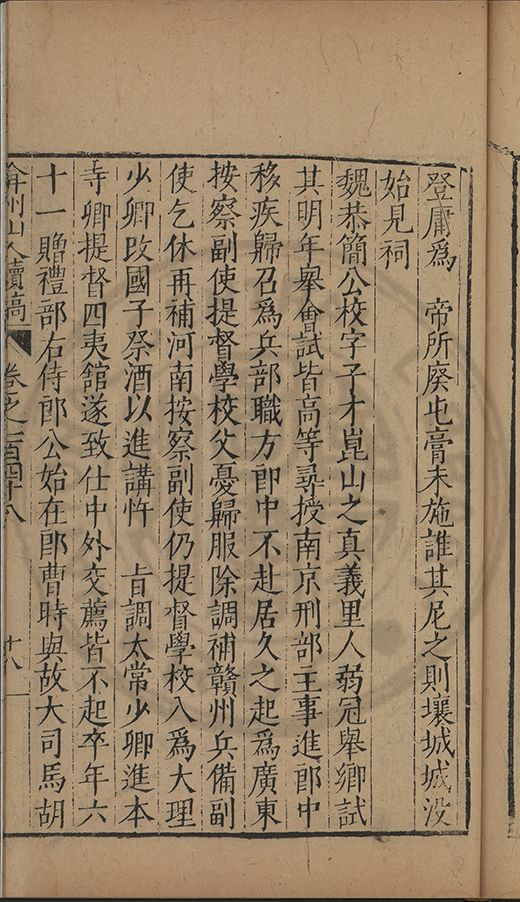 登庸為　帝所廢屯膏未施誰其尼之則壤城城没
始見祠
魏恭簡公校字子才崑山之真義里人弱冠舉鄉試
其明年舉會試皆高等尋授南京刑部主事進郎中
移疾歸召為兵部職方郎中不赴居久之起為廣東
按察副使提督學校父憂歸服除調補贛州兵備副
使乞休再補河南按察副使仍提督學校入為大理
少卿改國子祭酒以進講忤　旨調太常少卿進本
寺卿提督四夷館遂致仕中外交薦皆不起卒年六
十一贈禮部右侍郎公始在郎曹時與故大司馬胡
弇州山人續稿　卷之一百四十八　十八